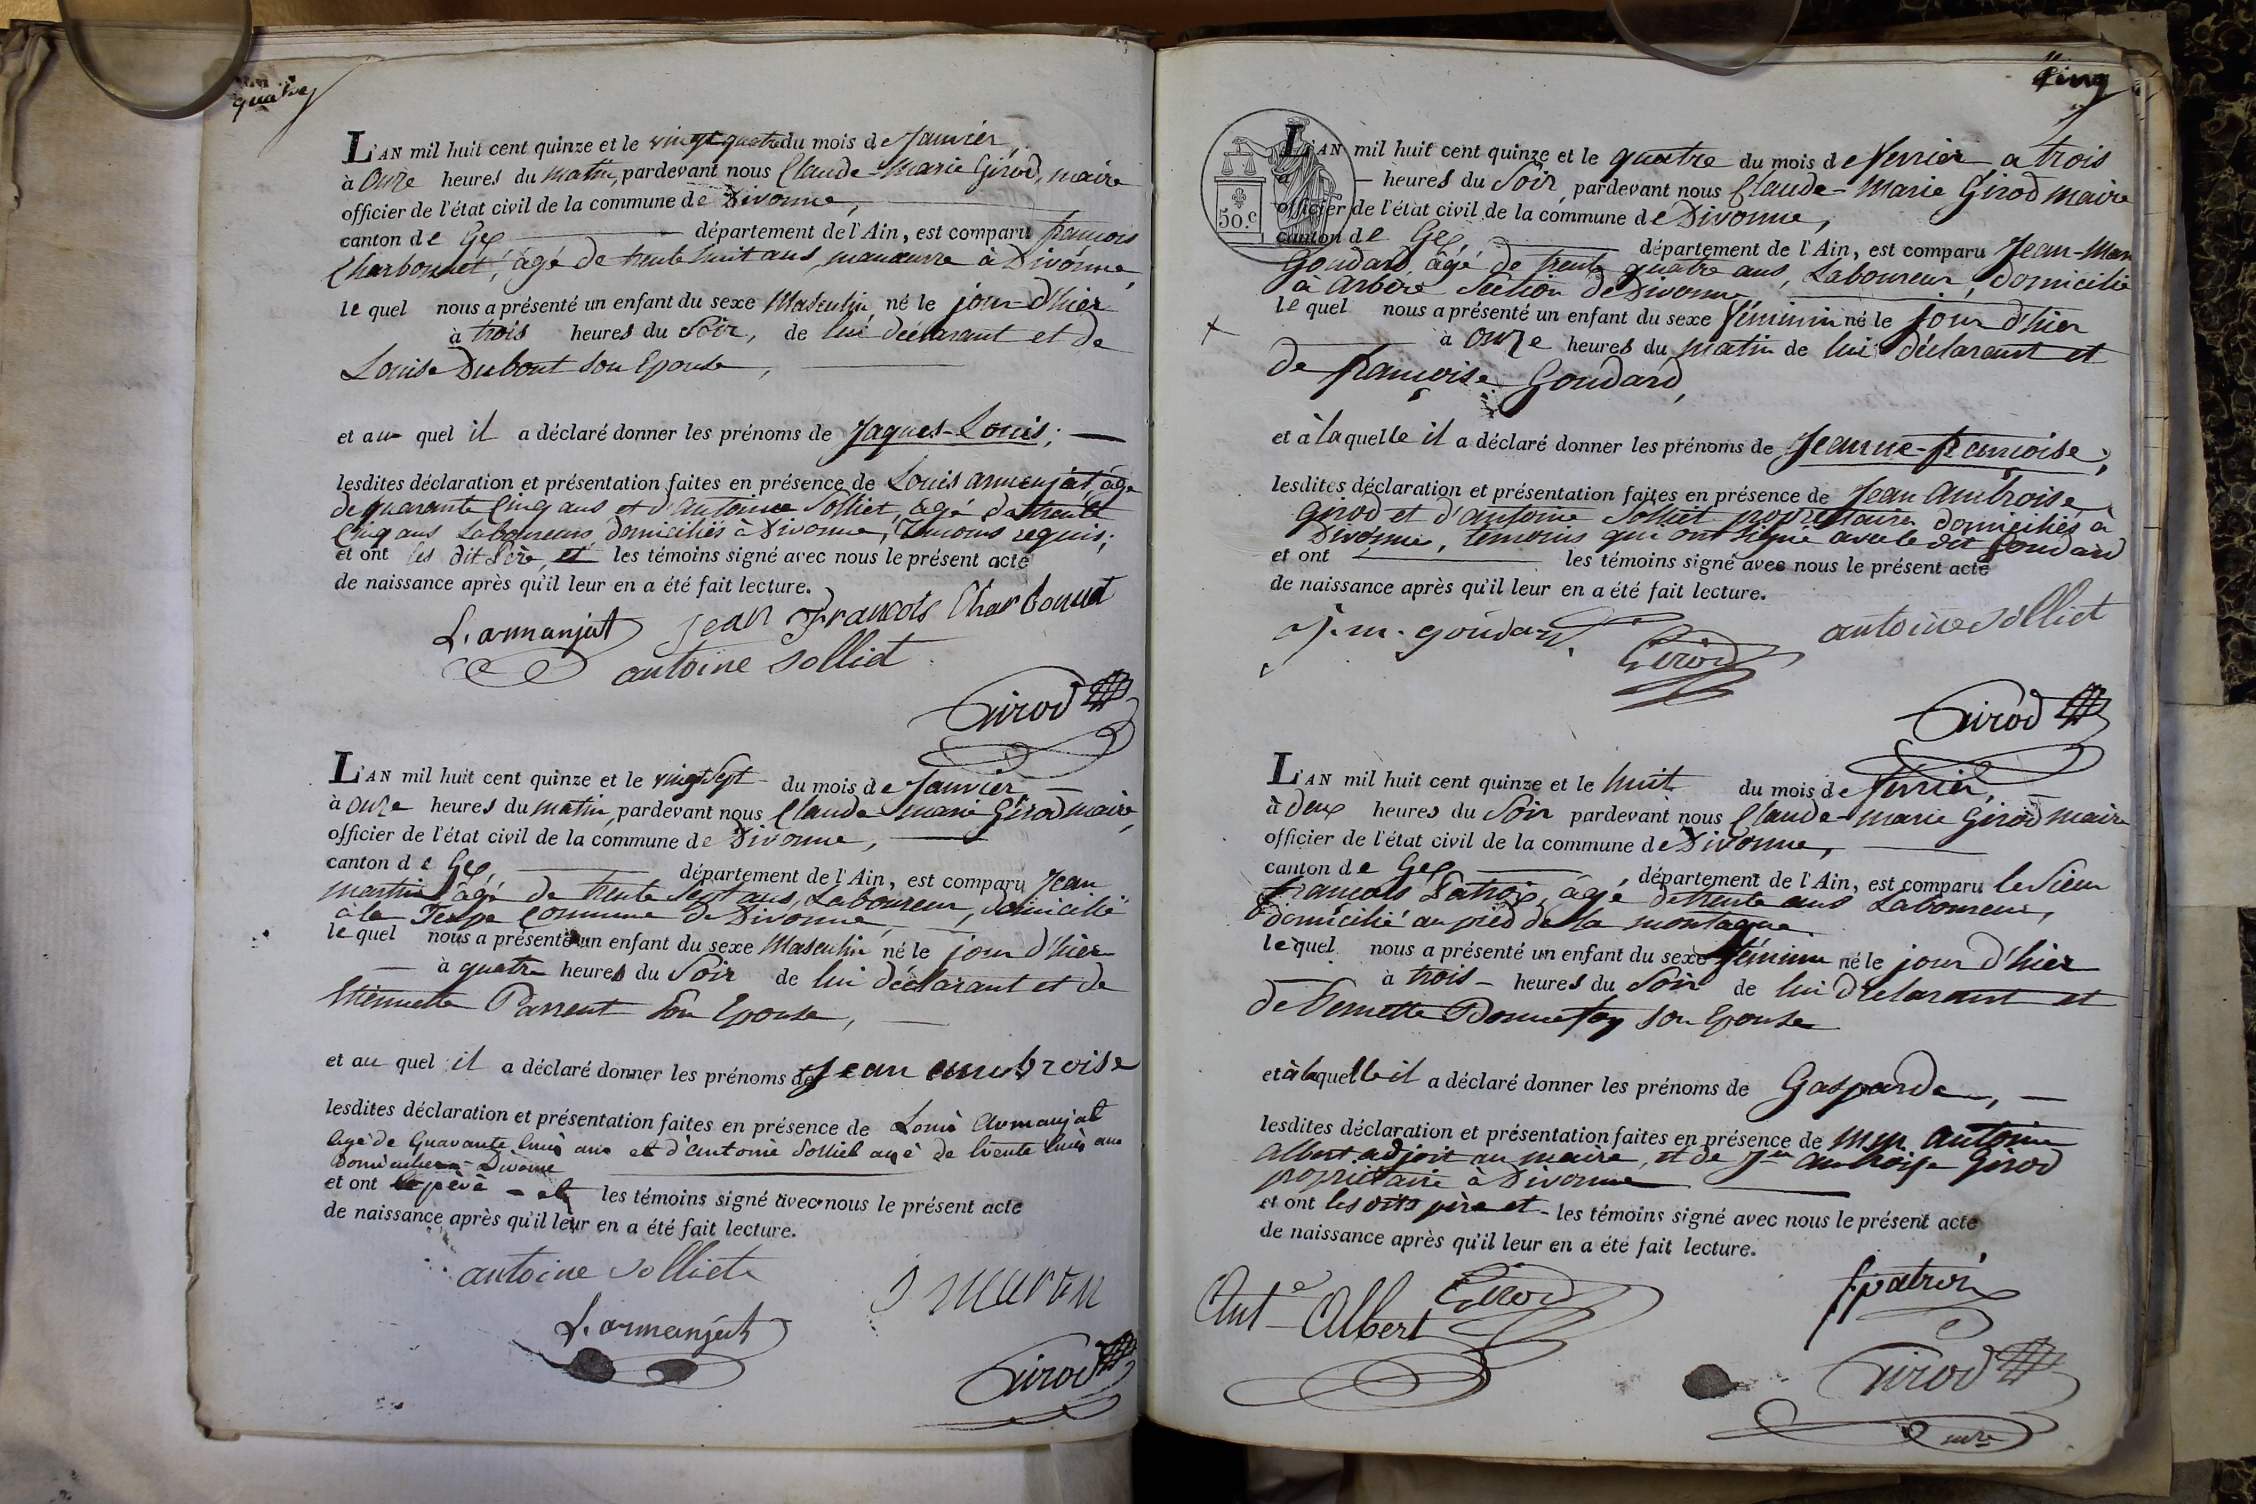 quatre
L'AN mil huit cent quinze et le vingt quatre du mois de Janvier,
à onze heures du matin, pardevant nous Claude-Marie Girod, maire
officier de l'état civil de la commune de Divonne,
canton de Gex département de l'Ain, est comparu francois
Charbonnet, âgé de trente huit ans, manœuvre à Divonne,
le quel nous a présenté un enfant du sexe Masculin, né le jour d'hier
à trois heures du Soir, de lui déclarant et de
Louise Dubout son Epouse,
et au quel il a déclaré donner les prénoms de Jaques-Louis;
lesdites déclaration et présentation faites en présence de Louis armenjat, âgé
de quarante Cinq ans et d'antoine Solliet, âgé de trente
Cinq ans Laboureurs, domiciliés à Divonne, Temoins requis;
et ont les dit Père, et les témoins signé avec nous le présent acte
de naissance après qu'il leur en a été fait lecture.
L. armanjat Jean François Charbonnet
antoine Solliet
Girod
L'AN mil huit cent quinze et le vingt Sept du mois de Janvier
à onze heures du matin, pardevant nous Claude marie Girod maire,
officier de l'état civil de la commune de Divonne,
canton de Gex, département de l'Ain, est comparu Jean
martin âgé de trente Sept ans, Laboureur, domicilié
à la commune de Divonne,
le quel nous a présenté un enfant du sexe Masculin né le jour d'hier
à quatre heures du Soir de lui déclarant et de
Etiennette Parrent Son Epouse,
et au quel il a déclaré donner les prénoms de Jean ambroise
lesdites déclaration et présentation faites en présence de Louis Armanjat
âgé de Quarante ans et d'antoine Solliet agé de trente ans
Domiciliés Divonne
et ont le père et les témoins signé avec nous le présent acte
de naissance après qu'il leur en a été fait lecture.
antoine Solliet
L. armanjat
Girod
Cinq
50.c
L'AN mil huit cent quinze et le quatre du mois de fevrier à trois
à heures du Soir, pardevant nous Claude-Marie Girod maire
officier de l'état civil de la commune de Divonne,
canton de Gex, département de l'Ain, est comparu Jean-Marie
Goudard, âgé de trente quatre ans, Laboureur, domicilié
à arbère Section de Divonne
le quel nous a présenté un enfant du sexe féminin né le jour d'hier
à onze heures du matin de lui déclarant et
de françoise Goudard,
et à laquelle il a déclaré donner les prénoms de Jeanne-françoise;
lesdites déclaration et présentation faites en présence de Jean Ambroise
Girod et d'antoine Solliet propriétaires domiciliés à
Divonne, temoins qui ont signé avec le dit Goudard
et ont les témoins signé avec nous le présent acte
de naissance après qu'il leur en a été fait lecture.
J. m. goudard. Girod antoine Solliet
Girod
L'AN mil huit cent quinze et le huit du mois de fevrier,
à deux heures du Soir pardevant nous Claude-marie Girod maire
officier de l'état civil de la commune de Divonne,
canton de Gex, département de l'Ain, est comparu le Sieur
francois Patroix, âgé de trente ans Laboureur,
domicilié au pied de la montagne
le quel nous a présenté un enfant du sexe féminin né le jour d'hier
à trois heures du Soir de lui déclarant et
de Pernette Bonnefoy son Epouse
et à laquelle il a déclaré donner les prénoms de Gasparde,
lesdites déclaration et présentation faites en présence de antoine
Albert adjoit au maire, et de ambroise Girod
propriétaire à Divonne
et ont les dits père et les témoins signé avec nous le présent acte
de naissance après qu'il leur en a été fait lecture.
Ant.e Albert Girod f patroi
Girod